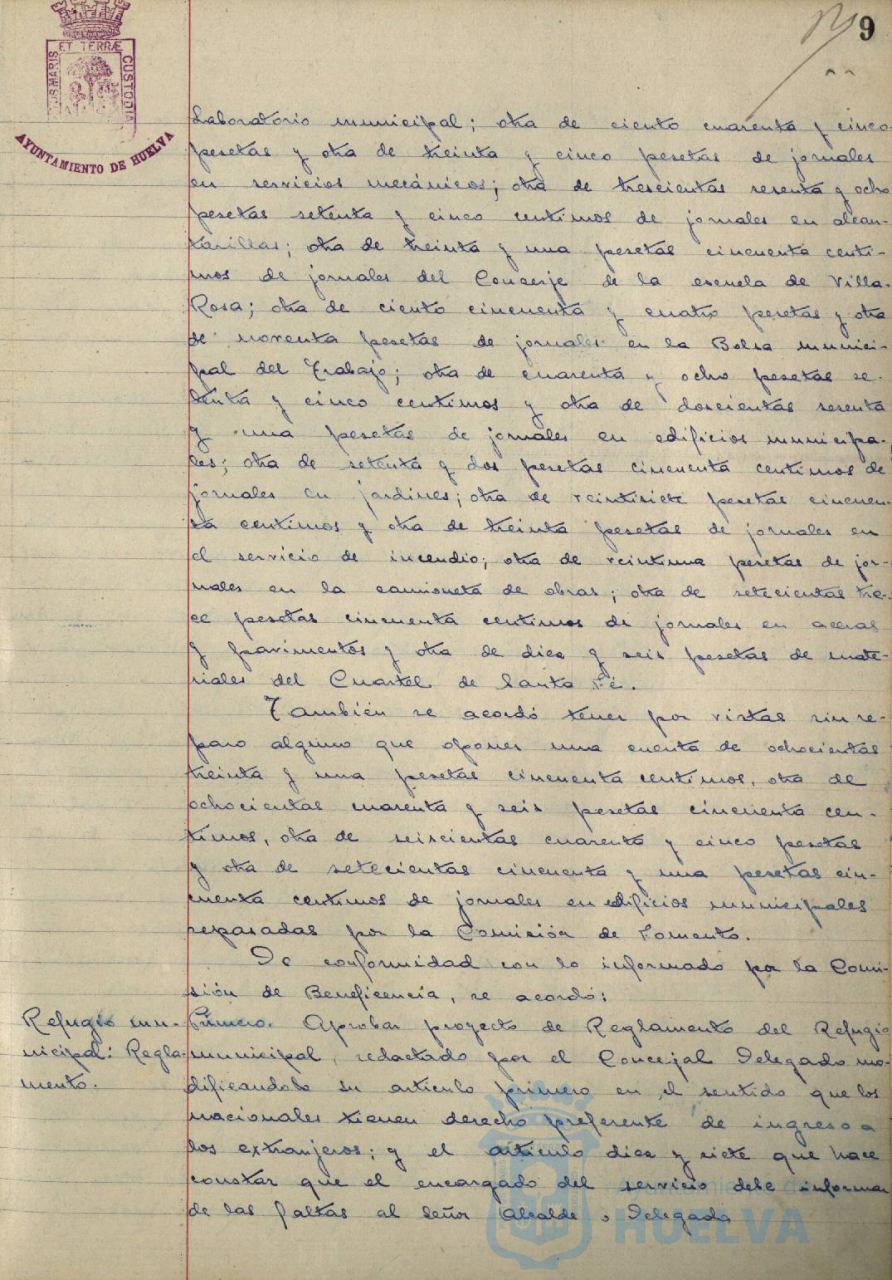 9
PORTUS MARIS ET TERRÆ CUSTODIA
AYUNTAMIENTO DE HUELVA
Laboratorio municipal; otra de ciento cuarenta y cinco
pesetas y otra de treinta y cinco pesetas de jornales
en servicios mecánicos; otra de trescientas sesenta y ocho
pesetas setenta y cinco centimos de jornales en alcan-
tarillas; otra de treinta y una pesetas cincuenta centi-
mos de jornales del Conserje de la escuela de Villa-
Rosa; otra de ciento cincuenta y cuatro pesetas y otra
de noventa pesetas de jornales en la Bolsa munici-
pal del Trabajo; otra de cuarenta y ocho pesetas se-
tenta y cinco centimos y otra de doscientas sesenta
y una pesetas de jornales en edificios municipa-
les; otra de setenta y dos pesetas cincuenta centimos de
jornales en jardines; otra de veintisiete pesetas cincuen-
ta centimos y otra de treinta pesetas de jornales en
el servicio de incendio; otra de veintiuna pesetas de jor-
nales en la camioneta de obras; otra de setecientas tre-
ce pesetas cincuenta centimos de jornales en aceras
y pavimentos y otra de diez y seis pesetas de mate-
riales del Cuartel de Santa Fé.
También se acordó tener por vistas sin re-
paro alguno que oponer una cuenta de ochocientas
treinta y una pesetas cincuenta centimos, otra de
ochocientas cuarenta y seis pesetas cincuenta cen-
timos, otra de seiscientas cuarenta y cinco pesetas
y otra de setecientas cincuenta y una pesetas cin-
cuenta centimos de jornales en edificios municipales
reparadas por la Comisión de Fomento.
De conformidad con lo informado por la Comi-
sión de Beneficencia, se acordó:
Refugio mu-
nicipal: Regla-
mento.
Primero. Aprobar proyecto de Reglamento del Refugio
municipal, redactado por el Concejal Delegado mo-
dificandolo su articulo primero en el sentido que los
nacionales tienen derecho preferente de ingreso a
los extranjeros; y el artículo diez y siete que hace
constar que el encargado del servicio debe informar
de las faltas al señor Alcalde o Delegado
Ayuntamiento de
HUELVA